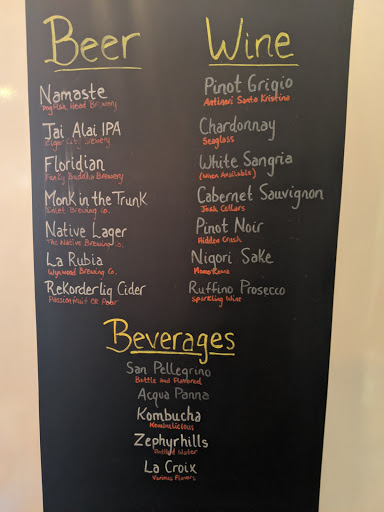 Beer
Namaste
Dogfish Head Brewery
Jai Alai IPA
Cigar City Brewery
Floridian
Funky Buddha Brewery
Monk in the Trunk
Inlet Brewing Co.
Native Lager
The Native Brewing Co.
La Rubia
Wynwood Brewing Co.
Rekorderlig Cider
Passionfruit or Pear
Wine
Pinot Grigio
Antinori Santa Kristina
Chardonnay
Seaglass
White Sangria
(When Available)
Cabernet Sauvignon
Josh Cellars
Pinot Noir
Hidden Crush
Nigori Sake
Ruffino Prosecco
Sparkling Wine
Beverages
San Pellegrino
Bottle and Flavored
Acqua Panna
Kombucha
Kombulicious
Zephyrhills
Bottled Water
La Croix
Various Flavors